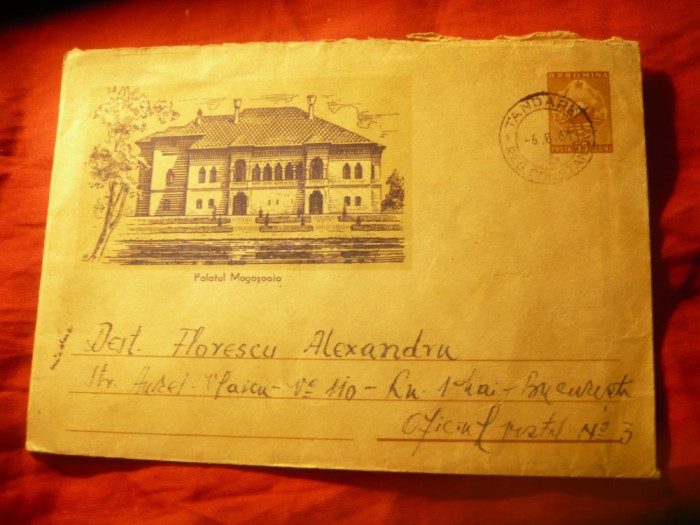 R.P.ROMINA
ȚĂNDĂREI
-6.8.6
REG. CONSTANȚA
POSTA
Palatul Mogoșoaia
Dest. Florescu Alexandru
Str. Aurel Vlaicu - No 110 - Rn. 1 Mai - București
Oficiul poștal No 3